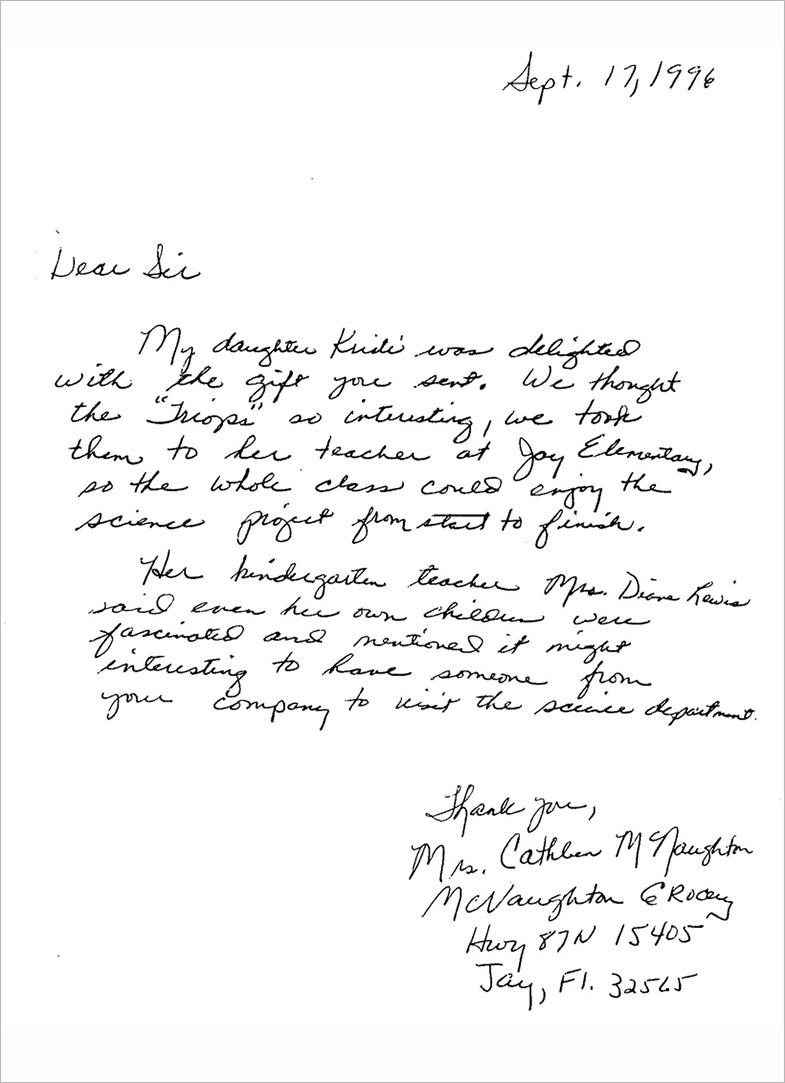 Sept. 17, 1996
Dear Sir
My daughter Kristi was delighted
with the gift you sent. We thought
the "Triops" so interesting, we took
them to her teacher at Jay Elementary,
so the whole class could enjoy the
science project from start to finish.
Her kindergarten teacher Mrs. Diane Lewis
said even her own children were
fascinated and mentioned it might
interesting to have someone from
your company to visit the science department.
Thank you,
Mrs. Cathleen McNaughton
McNaughton Grocery
Hwy 87N 15405
Jay, Fl. 32565